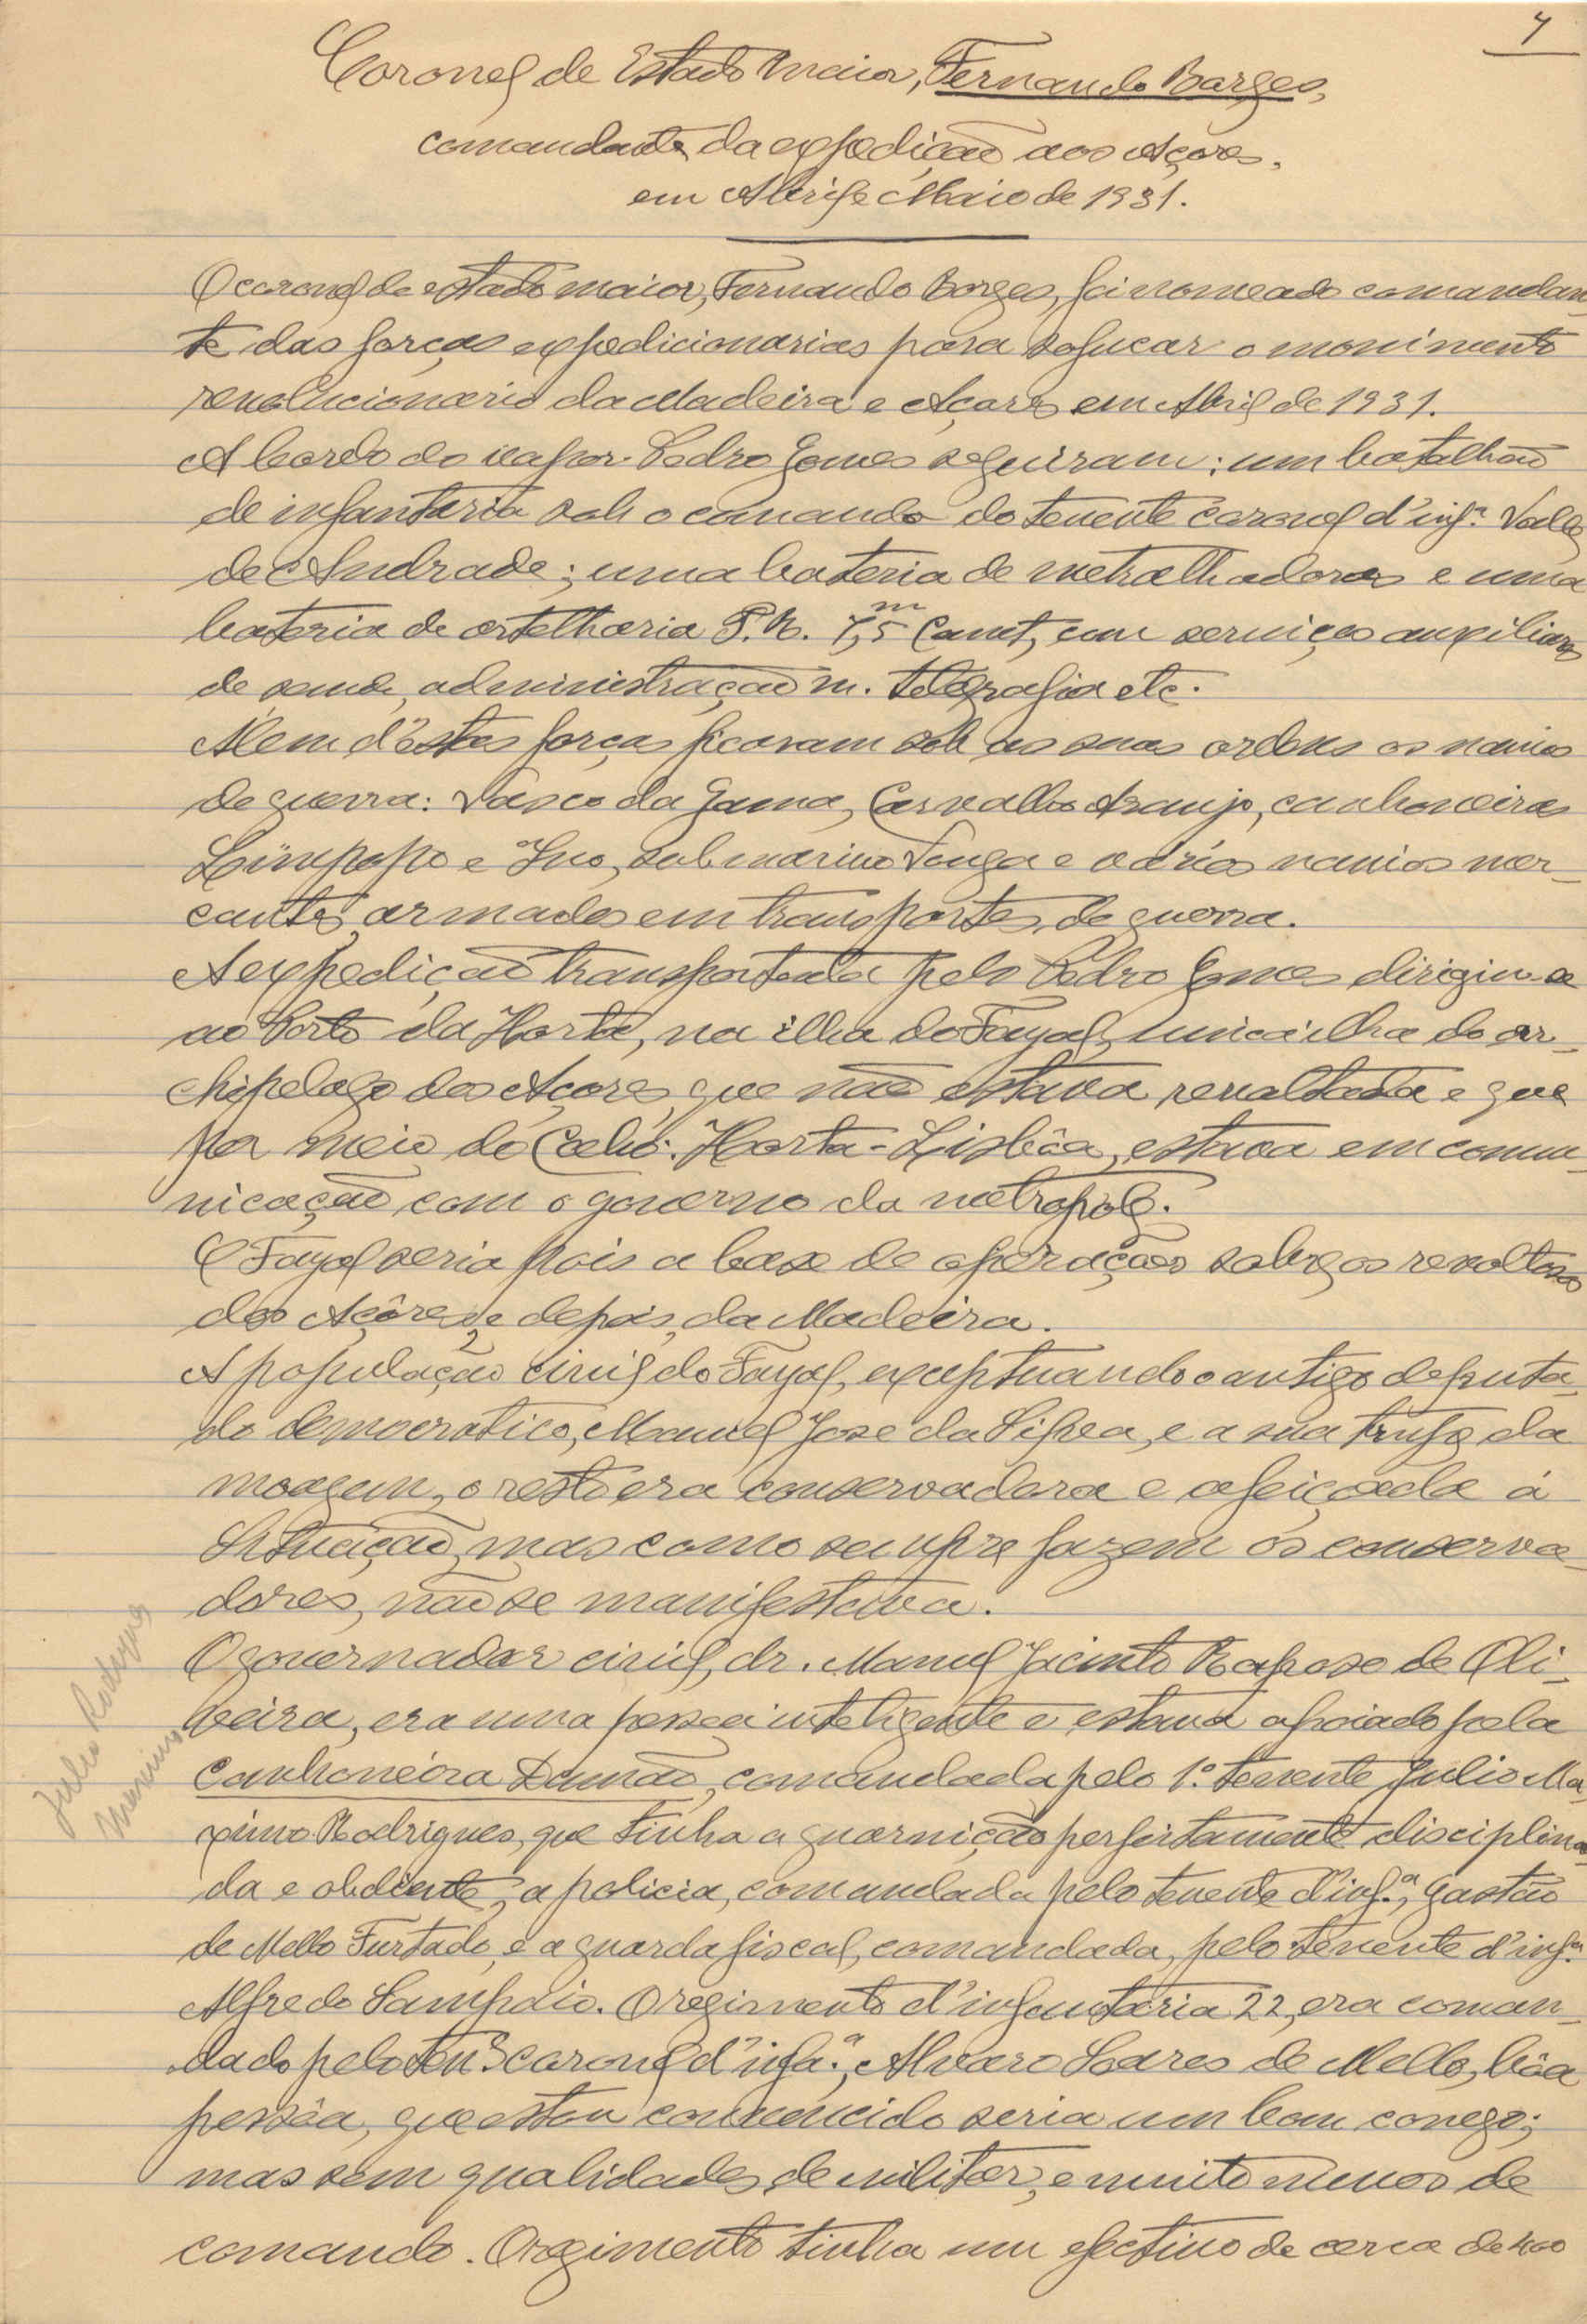 7
Coronel de Estado Maior, Fernando Borges,
comandante da expedição aos Açores,
em Abril e Maio de 1931.
O coronel de estado maior, Fernando Borges, foi nomeado comandan-
te das forças expedicionarias para sofucar o movimento
revolucionario da Madeira e Açores em Abril de 1931.
A bordo do vapor Pedro Gomes seguiram: um batalhão
de infantaria sob o comando do tenente coronel d'infª. Valle
de Andrade; uma bateria de metralhadoras e uma
bateria de artelharia T.R. 7,5 Canet, com serviços auxiliares
de saude, administração m. telegrafia etc.
Alem d'éstas forças ficavam sob as suas ordens os navios
de guerra: Vasco da Gama, Carvalho Araujo, canhoneiras
Limpopo e Ibo, submarino Vouga e vários navios mer-
cantes armados em transportes de guerra.
A expedição transportada pelo Pedro Gomes dirigiu-se
ao Porto da Horta, na ilha do Fayal, unica ilha do ar-
chipelago dos Açores que não estava revoltada e que
por meio do Cabo: Horta-Lisbôa, estava em comu-
nicação com o governo da metropole.
O Fayal seria pois a base de operações sobre os revoltosos
dos Açôres, e depois, da Madeira.
A população civil do Fayal, exceptuando o antigo deputa-
do democratico, Manuel José da Silva, e a sua trupe da
moagem, o resto era conservadora e afeiçoada á
Situação, mas como sempre fazem os conserva-
dores, não se manifestava.
O governador civil, dr. Manuel Jacinto Raposo de Oli-
veira, era uma pessoa inteligente e estava apoiado pela
canhoneira Damão, comandada pelo 1.º tenente Julio Ma-
ximo Rodrigues, que tinha a guarnição perfeitamente disciplina-
da e obdiente, a policia, comandada pelo tenente d'inf.ª, Gastão
de Mello Furtado, e a guarda fiscal, comandada, pelo tenente d'infª.
Alfredo Sampaio. O regimento d'infantaria 22, era coman-
dado pelo ten.e coronel d'infa.ª, Alvaro Soares de Mello, bôa
pessôa, que estou convencido seria um bom conego;
mas sem qualidades de militar, e muito menos de
comando. O regimento tinha um efectivo de cerca de 400
Julio Rodrigues
Maximo